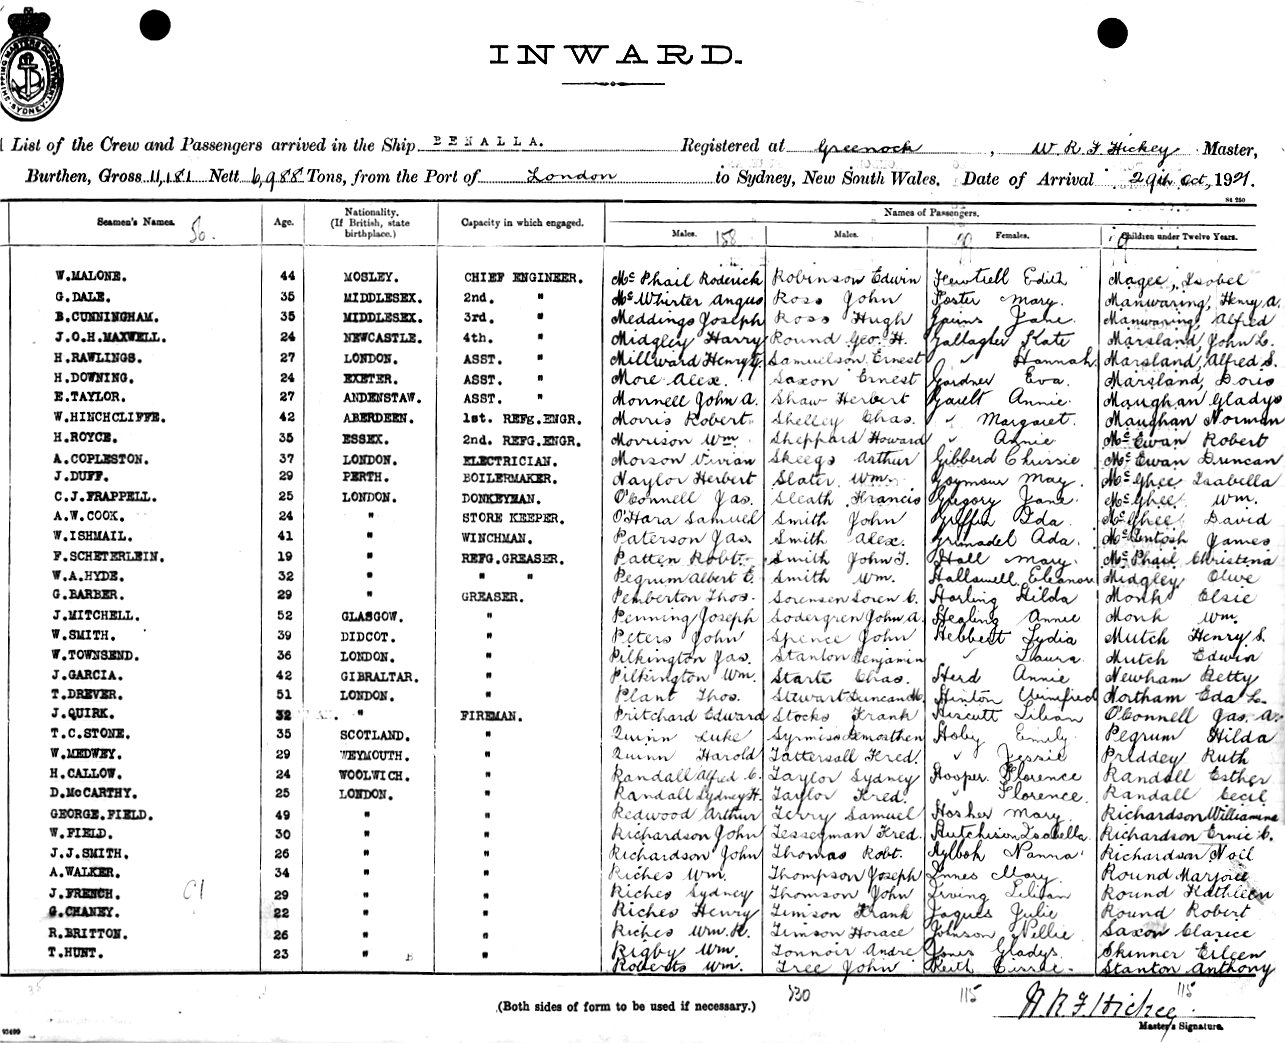 SHIPPING MASTERS DEPARTMENT SYDNEY
INWARD.
List of the Crew and Passengers arrived in the Ship BENALLA. Registered at Greenock, W. R. F Hickey Master,
Burthen, Gross 11,181 Nett 6,988 Tons, from the Port of London to Sydney, New South Wales. Date of Arrival 29th Oct, 1921.
St 250
Seamen's Names. Age. Nationality. (If British, state birthplace.) Capacity in which engaged. Names of Passengers.
Males. 158 Males. Females. Children under Twelve Years.
W.MALONE. 44 MOSLEY. CHIEF ENGINEER. McPhail Roderick Robinson Edwin Fewtrell Edith Magee, Isobel
G.DALE. 35 MIDDLESEX. 2nd. " McWhirter Angus Ross John Foster Mary. Manwaring, Henry A.
B.CUNNINGHAM. 35 MIDDLESEX. 3rd. " Meddings Joseph Ross Hugh Jane. Manwaring, Alfred
J.O.H.MAXWELL. 24 NEWCASTLE. 4th. " Midgley Harry Round Geo. H. Gallagher Kate Marsland John L.
H.RAWLINGS. 27 LONDON. ASST. " Millward Henry Samuelson Ernest " Hannah Marsland, Alfred S.
H.DOWNING. 24 EXETER. ASST. " More Alex. Saxon Ernest Gardner Eva. Marsland, Doris
E.TAYLOR. 27 ANDENSTAW. ASST. " Monnell John A. Shaw Herbert Gault Annie. Maughan Gladys
W.HINCHCLIFFE. 42 ABERDEEN. 1st. REFg.ENGR. Morris Robert. Shelley Chas. " Margaret. Maughan Norman
H.ROYCE. 35 ESSEX. 2nd. REFG.ENGR. Morrison Wm. Sheppard Howard " Annie McEwan Robert
A.COPLESTON. 37 LONDON. ELECTRICIAN. Morson Vivian Skeegs Arthur Gibberd Chrissie McEwan Duncan
J.DUFF. 29 PERTH. BOILERMAKER. Naylor Herbert Slater Wm. May. McGhee Isabella
C.J.FRAPPELL. 25 LONDON. DONKEYMAN. O'Connell Jas. Sleath Francis Gregory Jane McGhee Wm.
A.W.COOK. 24 " STORE KEEPER. O'Hara Samuel Smith John Griffin Ida. McGhee David
W.ISHMAIL. 41 " WINCHMAN. Paterson Jas. Smith Alex. Ada. McIntosh James
F.SCHETERLEIN. 19 " REFG.GREASER. Patten Robt. Smith John T. Hall Mary. McPhail Christena
W.A.HYDE. 32 " " " Pegrum Albert E. Smith Wm. Hallswell Eleanor Midgley Olive
G.BARBER. 29 " GREASER. Pemberton Thos. Sorensen Soren C. Harling Hilda Monk Elsie
J.MITCHELL. 52 GLASGOW. " Penning Joseph Sodergren John A. Healing Annie Monk Wm.
W.SMITH. 39 DIDCOT. " Peters John Spence John Hebbert Lydia Mutch Henry S.
W.TOWNSEND. 36 LONDON. " Pilkington Jas. Stanton Benjamin " Laura. Mutch Edwin
J.GARCIA. 42 GIBRALTAR. " Pilkington Wm. Starte Chas. Herd Annie Newham Betty
T.DREVER. 51 LONDON. " Plant Thos. Stewart Duncan M. Hinton Winifred Northam Eda L.
J.QUIRK. 32 " FIREMAN. Pritchard Edward Stocks Frank Hiscutt Lilian O'Connell Jas. A.
T.C.STONE. 35 SCOTLAND. " Quinn Luke Hoby Emily. Pegrum Hilda
W.MEDWEY. 29 WEYMOUTH. " Quinn Harold Tattersall Fred. " Jessie Priddey Ruth
H.CALLOW. 24 WOOLWICH. " Randall Alfred C. Taylor Sydney Hooper Florence Randall Esther
D.McCARTHY. 25 LONDON. " Randall Sydney H. Taylor Fred. " Florence. Randall Cecil
GEORGE.FIELD. 49 " " Redwood Arthur Terry Samuel Hosher Mary. Richardson Williamina
W.FIELD. 30 " " Richardson John Tesseyman Fred. Hutchison Isabella. Richardson Ernie C.
J.J.SMITH. 26 " " Richardson John Thomas Robt. Nanna Richardson Noel
A.WALKER. 34 " " Riches Wm. Thompson Joseph Innes Mary Round Marjorie
J.FRENCH. 29 " " Riches Sydney Thomson John Irving Lilian Round Kathleen
G.CHANEY. 22 " " Riches Henry Timson Frank Jaques Julie Round Robert
R.BRITTON. 26 " " Riches Wm. H. Timson Horace Johnson Nellie Saxon Clarice
T.HUNT. 23 " " Rigby Wm. Tonnoir Andre Jones Gladys. Skinner Eileen
Roberts Wm. Tree John Keith Cissie. Stanton Anthony
(Both sides of form to be used if necessary.) 130 115 115
W. R. F. Hickey
Master's Signature.